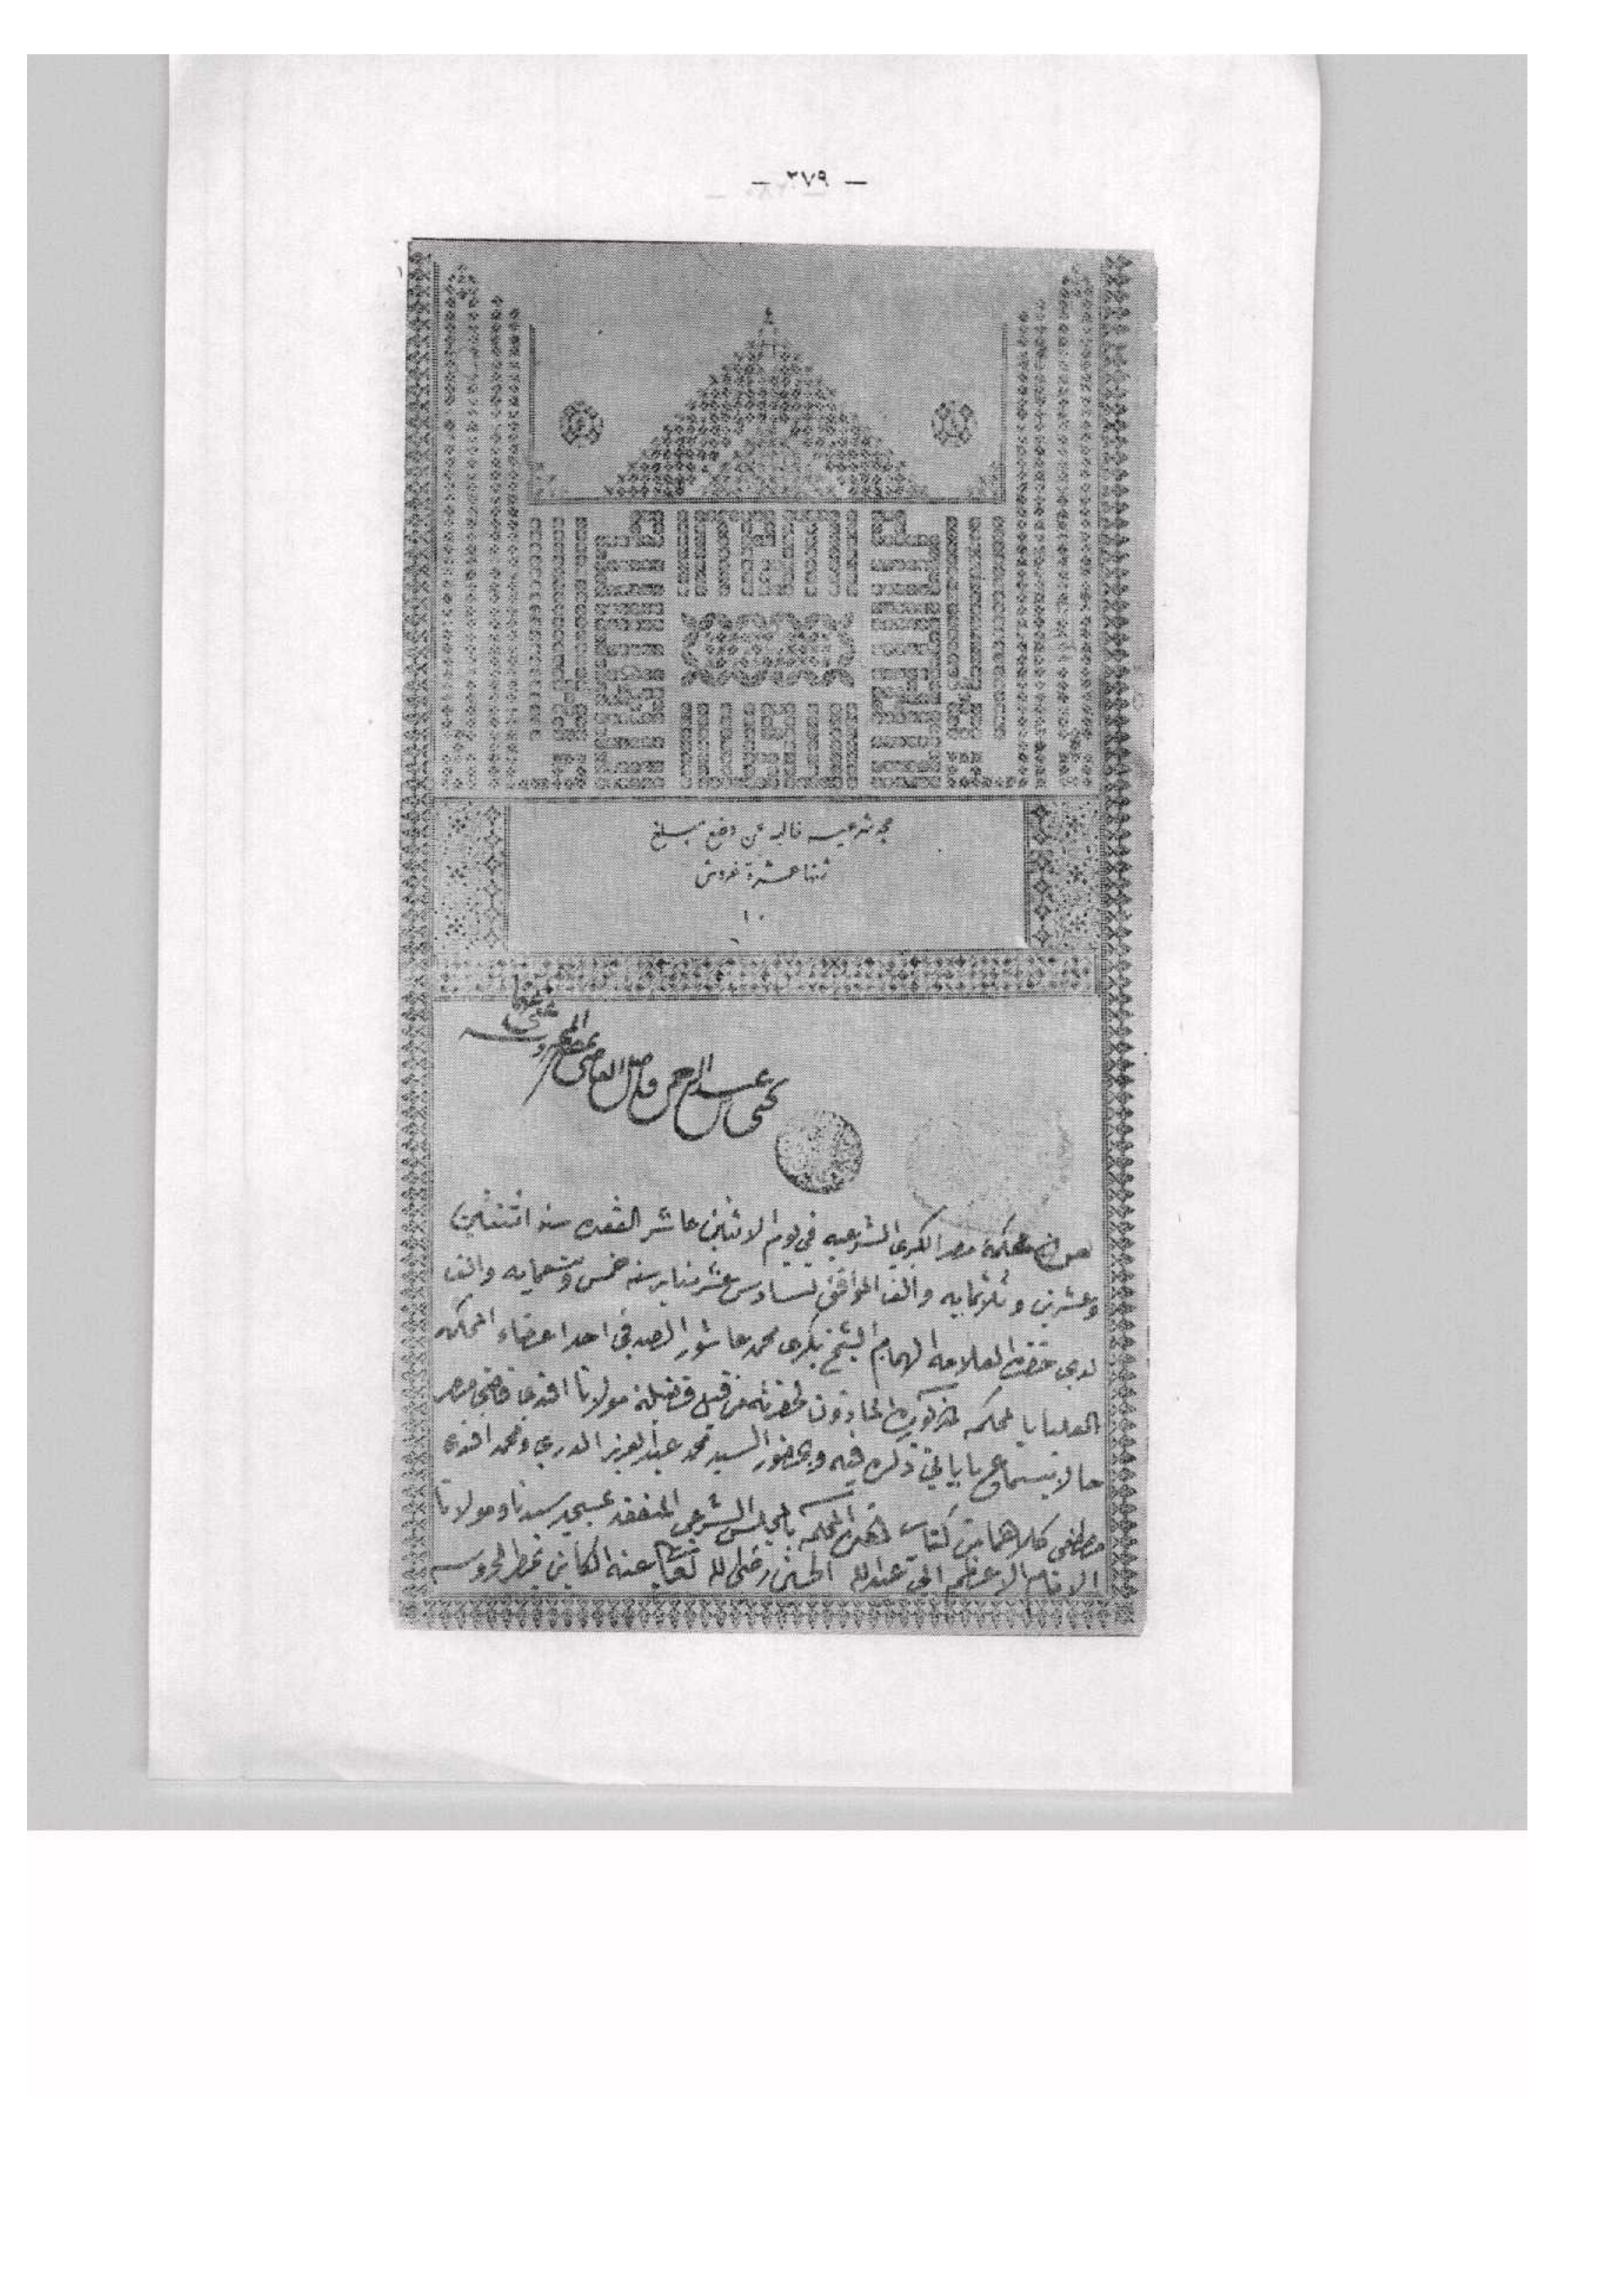 — ٢٧٩ —
شرعيه خاليه عن دفع مبلغ
عشرة قروش
١٠
يحيى عبد الرحمن فاضل القاضى بمصر المحروسه
محكمة مصر الكبرى الشرعيه في يوم الاثنين عاشر القعده سنه اثنتين
وعشرين وثلاثمايه والف الموافق لسادس عشر يناير سنه خمس وتسعمايه والف
لدى حضرة العلامه الهمام الشيخ بكرى محمد عاشور الصدفى احد اعضاء المحكمه
العليا بالمحكمه المذكوره الماذون لحضرته من قبل فضيلة مولانا افندى قاضى مصر
حالا بسماع ما ياتى ذكره فيه وبحضور السيد محمد عبد العزيز الدرى ومحمد افندى
مصطفى كلاهما من كتاب المحكمه بالمجلس الشرعى المنعقد بمسجد سيدنا ومولانا
الامام الاعظم ابى عبد الله الحسين رضى الله تعالى عنه الكاين بخط المحروسه